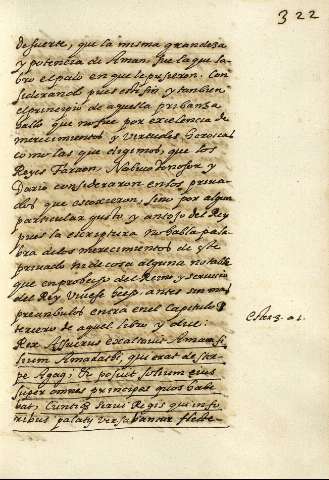 322
de suerte, que la misma grandeza
y potencia de Aman, fue la que la-
bro el palo en que le pusieron. Con
siderando pues este fin y tambien
el principio de aquella pribanza
hallo que no fue por excelencia de
merecimientos y virtudes heroicas
como las que digimos, que los
Reyes Faraon, Nabucodonosor y
Dario consideraron en sus priua-
dos que escogieron, sino por algun
particular gusto y antojo del Rey
pues la escriptura no habla pala-
bra de los merecimientos de este
priuado ni de cosa alguna notable
que en probecho del Reino y seruicio
del Rey huuiese hecho, antes sin mas
preambulos entra en el capitulo 3
tercero de aquel libro y dice:
Rex Asuerus exaltauit Aman fi-
lium Amadathi, qui erat de stir-
pe Agag, et posuit solium eius
super omnes principes quos habe-
bat, cunctiq serui Regis qui in fo-
ribus palatij versabantur flecte-
Ester 3. a 1.